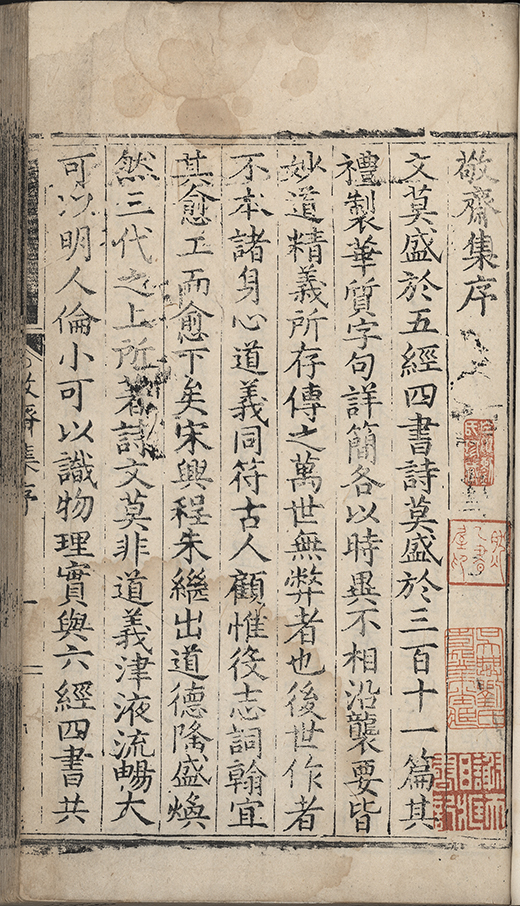 敬齋集序
文莫盛於五經四書詩莫盛於三百十一篇其
體製華質字句詳簡各以時異不相沿襲要皆
妙道精義所存傳之萬世無弊者也後世作者
不本諸身心道義同符古人顧惟役志詞翰宜
其愈工而愈下矣宋興程朱繼出道德隆盛煥
然三代之上所著詩文莫非道義津液流暢大
可以明人倫小可以識物理實與六經四書共
敬齋集序
一